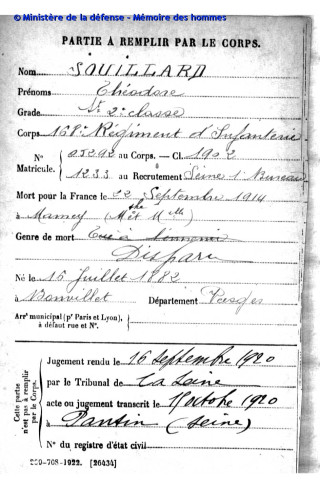 © Ministère de la défense - Mémoire des hommes
PARTIE À REMPLIR PAR LE CORPS.
Nom SOUILLARD
Prénoms Théodore
Grade St 2e classe
Corps 168e Régiment d'Infanterie
N° 05292 au Corps. — Cl. 1902
Matricule. 1233 au Recrutement Seine 1r Bureau
Mort pour la France le 22 Septembre 1914
à Mamey (Mthe Mlle)
Genre de mort Tué à l'ennemi
Disparu
Né le 15 Juillet 1882
à Bonvillet Département Vosges
Arrt municipal (pr Paris et Lyon),
à défaut rue et N°.
Cette partie
n'est pas à remplir
par le Corps.
Jugement rendu le 16 septembre 1920
par le Tribunal de La Seine
acte ou jugement transcrit le 11 octobre 1920
à Pantin (Seine)
N° du registre d'état civil
-708-1922. [26434]